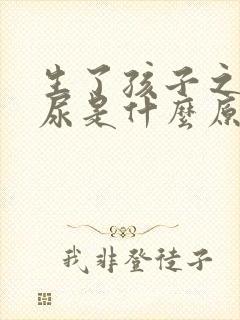 生了孩子之
尿是什麼原
我非登徒子